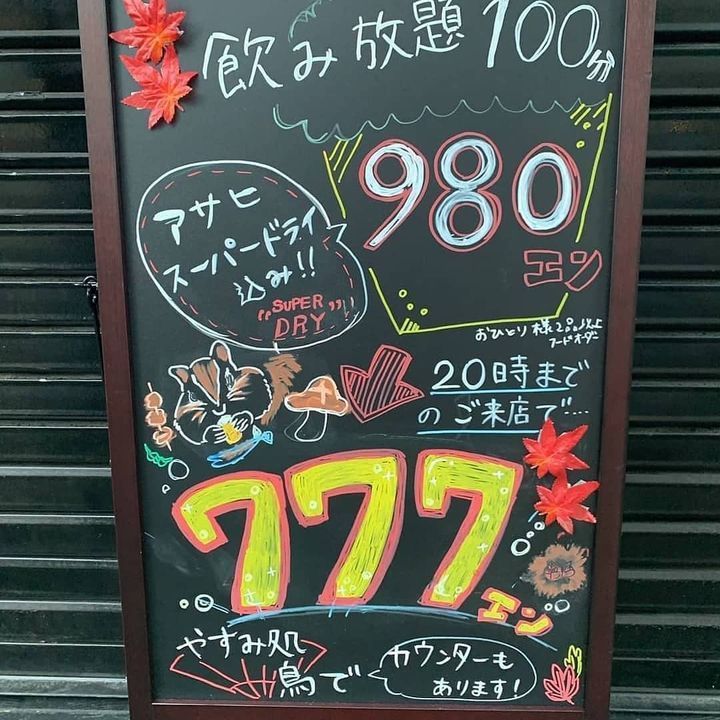 飲み放題100分
980
エン
アサヒ
スーパードライ
込み!!
"SUPER
DRY"
おひとり様2品以上
フードオーダー
20時まで
のご来店で…
777
エン
やすみ処
鳥で
カウンターも
あります!